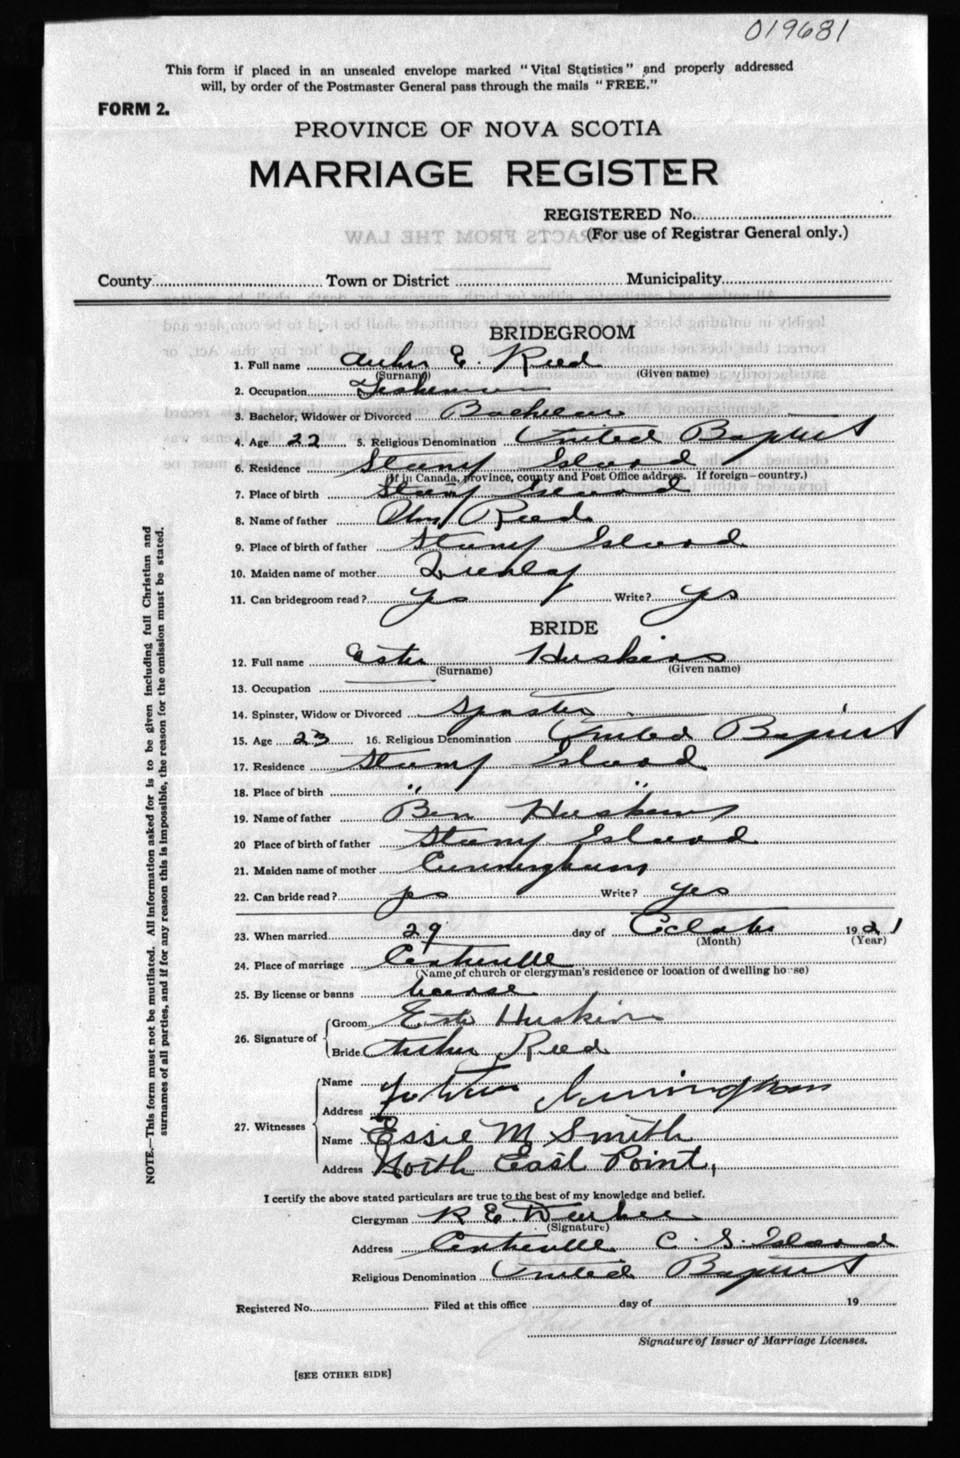 019681
This form if placed in an unsealed envelope marked "Vital Statistics" and properly addressed
will, by order of the Postmaster General pass through the mails "FREE."
FORM 2.
PROVINCE OF NOVA SCOTIA
MARRIAGE REGISTER
REGISTERED No.
(For use of Registrar General only.)
EXTRACTS FROM THE LAW
County Town or District Municipality
BRIDEGROOM
1. Full name Arthur E. Reed
(Surname) (Given name)
2. Occupation Fisherman
3. Bachelor, Widower or Divorced Bachelor
4. Age 22 5. Religious Denomination United Baptist
6. Residence Stump Island
(If in Canada, province, county and Post Office address. If foreign—country.)
7. Place of birth Stump Island
8. Name of father Reed
9. Place of birth of father Stump Island
10. Maiden name of mother
11. Can bridegroom read? yes Write? yes
BRIDE
12. Full name Ester Huskins
(Surname) (Given name)
13. Occupation
14. Spinster, Widow or Divorced Spnster
15. Age 23 16. Religious Denomination United Baptist
17. Residence Stump Island
18. Place of birth " "
19. Name of father Ben Huskins
20 Place of birth of father Stump Island
21. Maiden name of mother Cunningham
22. Can bride read? yes Write? yes
23. When married 29 day of October 1921
(Month) (Year)
24. Place of marriage Centreville
(Name of church or clergyman's residence or location of dwelling house)
25. By license or banns license
26. Signature of Groom Ester Huskins
Bride Arthur Reed
27. Witnesses Name Cunningham
Address
Name Essie M Smith
Address North East Point,
I certify the above stated particulars are true to the best of my knowledge and belief.
Clergyman R. E.
(Signature)
Address Centreville C. S. Island
Religious Denomination United Baptist
Registered No. Filed at this office day of 19
Signature of Issuer of Marriage Licenses.
[SEE OTHER SIDE]
NOTE.—This form must not be mutilated. All information asked for is to be given including full Christian and
surnames of all parties, and if for any reason this is impossible, the reason for the omission must be stated.